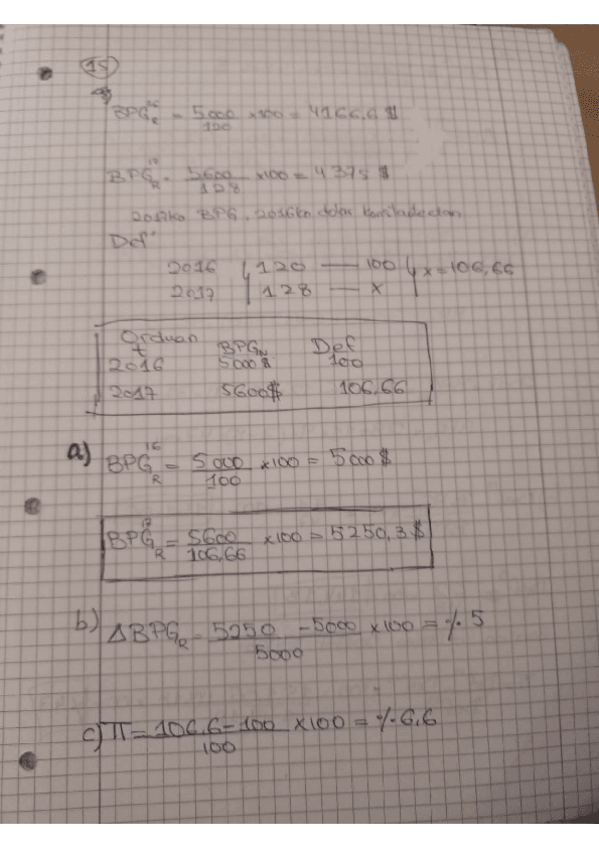 15
a)
BPG_R^16 = 5000/120 x100 = 4166,6 $
BPG_R^17 = 5600/128 x100 = 4375 $
2017ko BPG, 2016ko dolar
Def
2016 120 — 100 x = 106,66
2017 128 — x
Orduan
t BPG_N Def
2016 5000$ 100
2017 5600$ 106,66
a) BPG_R^16 = 5000/100 x100 = 5000 $
BPG_R^17 = 5600/106,66 x100 = 5250,3 $
b) ΔBPG_R = 5250 - 5000/5000 x100 = % 5
c) π = 106,6 - 100/100 x100 = % 6,6